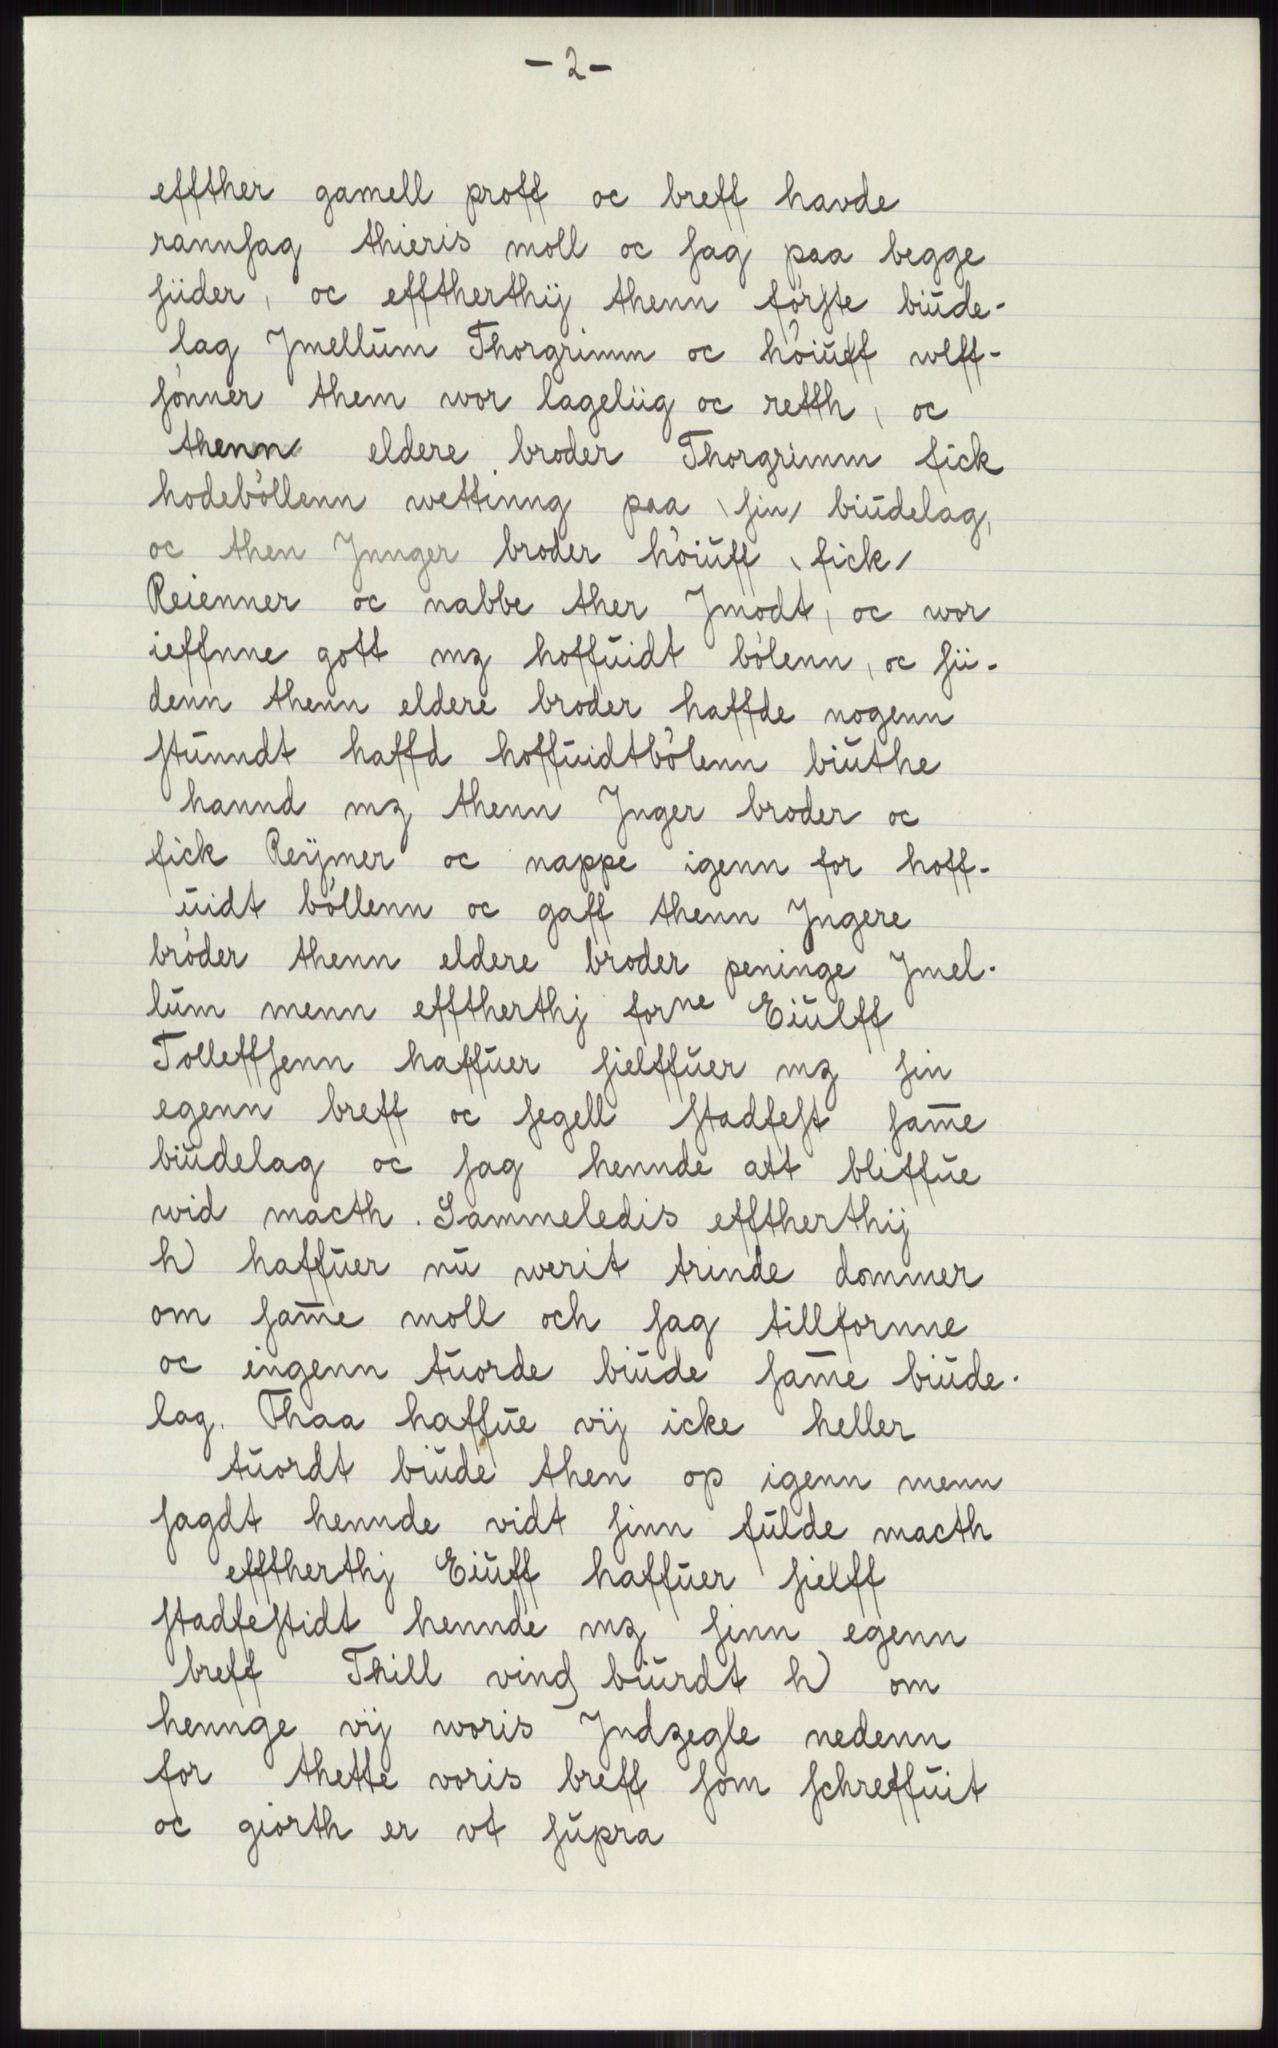 - 2 -
effther gamell proff oc breff havde
rannsag thieris moll oc sag paa begge
siider, oc efftherthij thenn første biŭde-
lag Jmellŭm Thorgrimm oc høiŭff wlff-
sønner them wor lageliig oc retth, oc
thenn eldere broder Thorgrimm fick
hodebøllenn wettinng paa \ sin / biŭdelag,
oc then Jnnger broder høiŭff \ fick /
Reienner oc nabbe ther Jmodt, oc wor
ieffnne gott mz hoffŭidt bølenn, oc sii-
denn thenn eldere broder haffde nogenn
stŭnndt haffd hoffŭidtbølenn biŭthe
hannd mz thenn Jnger broder oc
fick Reijmer oc nappe igenn for hoff-
ŭidt bøllenn oc gaff thenn Jngere
brøder thenn eldere broder peninge Jmel-
lŭm menn efftherthj forne Eiŭlff
Tolleffsenn haffŭer sielffŭer mz sin
egenn breff oc segell stadfest sam̅e
biŭdelag oc sag hennde att bliffŭe
wid macth. Sammeledis efftherthij
h) haffŭer nŭ werit trinde dommer
om sam̅e moll och sag tillfornne
oc eingenn tŭorde biŭde sam̅e biŭde-
lag. Thaa haffŭe vij icke heller
tŭordt biŭde then op igenn menn
sagdt hennde vidt sinn fŭlde macth
efftherthj Eiŭff haffŭer sielff
stadfestidt hennde mz sinn egenn
breff Thill vind biŭrdt h) om
hennge vij woris Jndzegle nedenn
for thette voris breff som schreffŭit
oc giorth er vt sŭpra